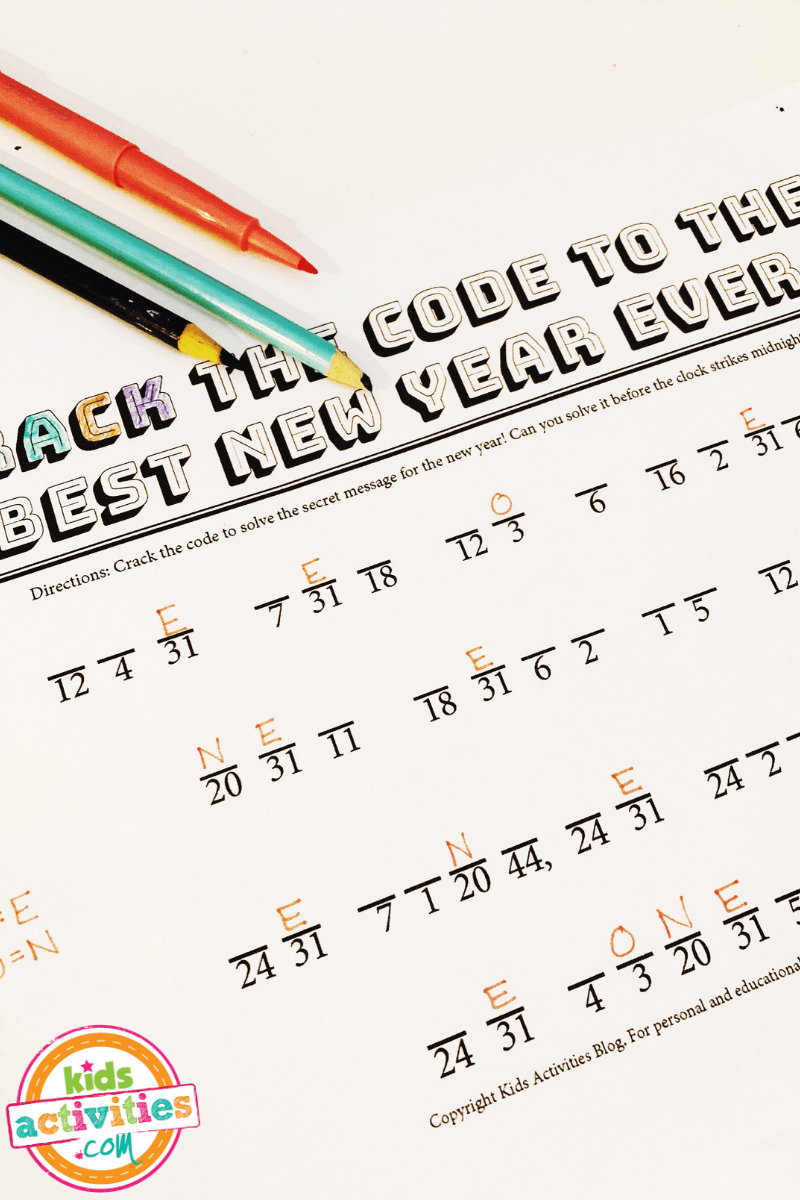 RACK THE CODE TO THE
BEST NEW YEAR EVER
Directions: Crack the code to solve the secret message for the new year! Can you solve it before the clock strikes midnight
E E O E
12 4 31 7 31 18 12 3 6 16 2 31
N E E
20 31 11 18 31 6 2 1 5 12
E N E
24 31 7 1 20 44, 24 31 24 2
E O N E
24 31 4 3 20 31 5
=E
=N
Copyright Kids Activities Blog. For personal and educational
kids
activities
.com